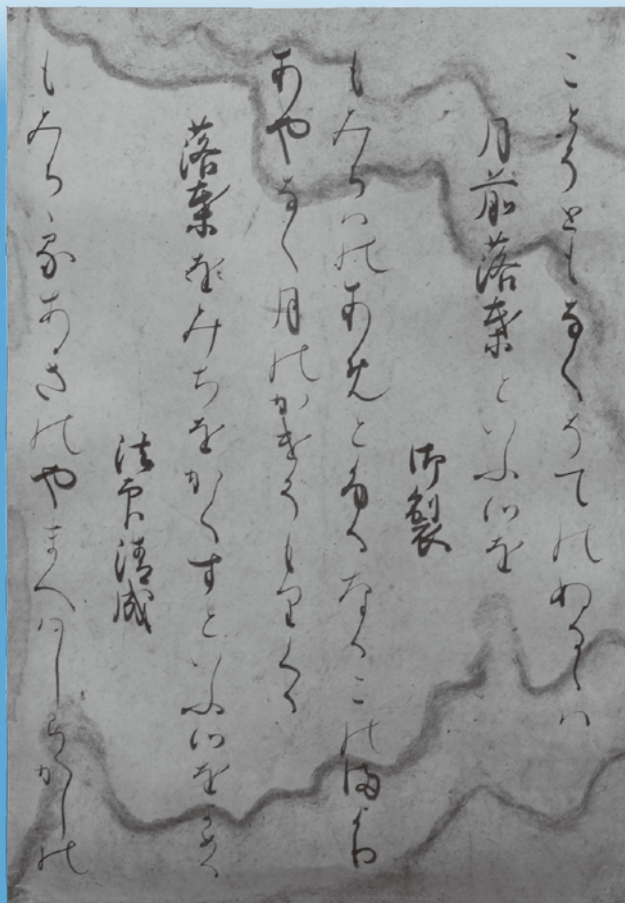 ことそともなくそてのぬるゝは
月前落葉といふ心を
御製
もみちはのあめとふるなるこのまより
あやなく月のかけそもりくる
落葉みちをかくすといふ心をよめる
法印清成
もみちゝるあきのやまへはしらかしの